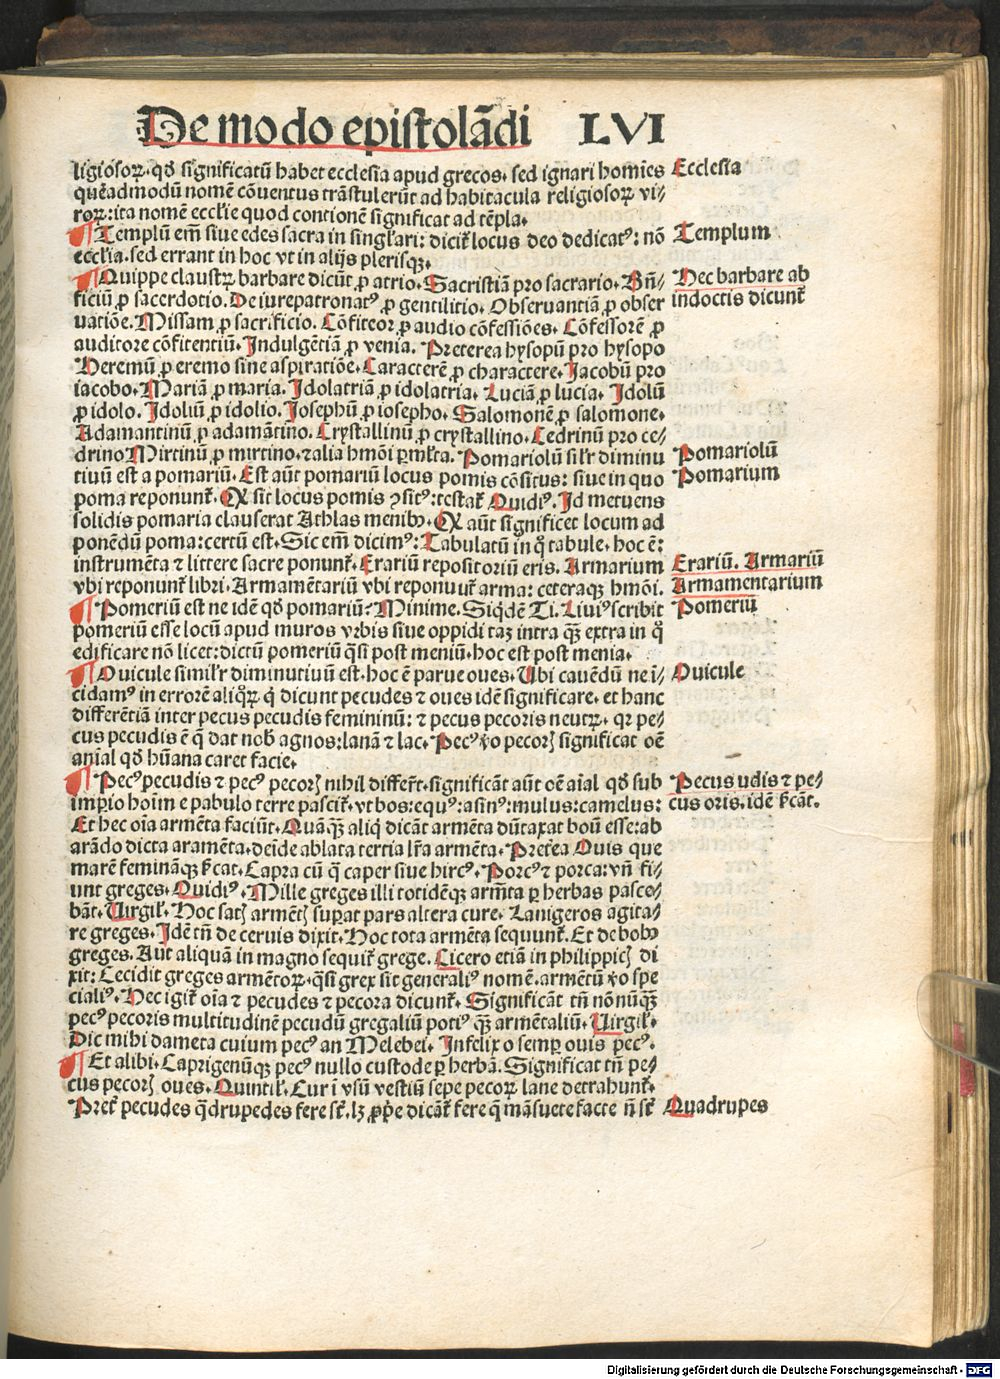 De modo epistolādi LVI
ligiosoꝝ. qđ significatū habet ecclesia apud grecos. sed ignari homīes
quēadmodū nomē cōuentus trāstulerūt ad habitacula religiosoꝝ vi-
roꝝ: ita nomē eccl̄ie quod contionē significat ad tēpla.
Ecclesia
¶ Templū em̄ siue edes sacra in singl̄ari: dicit̄ locus deo dedicatꝰ: nō
eccl̄ia. sed errant in hoc vt in alijs plerisqꝫ.
Templum
¶ Quippe claustꝝ barbare dicūt ꝓ atrio. Sacristiā pro sacrario. Bn̄-
ficiū ꝓ sacerdotio. De iurepatronatꝰ ꝓ gentilitio. Obseruantiā ꝓ obser
uatiōe. Missam ꝓ sacrificio. Cōfiteor ꝓ audio cōfessiōes. Cōfessorē ꝓ
auditore cōfitentiū. Indulgētiā ꝓ venia. Preterea hysopū pro hysopo
Heremū ꝓ eremo sine aspiratiōe. Caracterē ꝓ charactere. Jacobū pro
iacobo. Mariā ꝓ maria. Idolatriā ꝓ idolatria. Luciā ꝓ lucia. Idolū
ꝓ idolo. Idoliū ꝓ idolio. Josephū ꝓ iosepho. Salomonē ꝓ salomone.
Adamantinū ꝓ adamātino. Crystallinū ꝓ crystallino. Cedrinū pro ce-
drino Mirtinū ꝓ mirtino. ⁊ alia hmōi ꝑml̄ta. Pomariolū sil̄r diminu
tiuū est a pomariū. Est aūt pomariū locus pomis cōsitus: siue in quo
poma reponunt̄. Qꝫ sit locus pomis ꝯsitꝰ: testat̄ Ouidiꝰ. Id metuens
solidis pomaria clauserat Athlas menibꝫ. Qꝫ aūt significet locum ad
ponēdū poma: certū est. Sic em̄ dicimꝰ: Tabulatū in q̊ tabule. hoc ē:
instrumēta ⁊ littere sacre ponunt̄. Erariū repositoriū eris. Armarium
vbi reponunt̄ libri. Armamētariū vbi reponuūt̄ arma: ceteraqꝫ hmōi.
Hec barbare ab
indoctis dicunt̄
Pomariolū
Pomarium
Erariū. Armariū
Armamentarium
¶ Pomeriū est ne idē qđ pomariū? Minime. Siqdē Ti. Liuiꝰ scribit
pomeriū esse locū apud muros vrbis siue oppidi taꝫ intra qꝫ̄ extra in q̊
edificare nō licet: dictū pomeriū q̄si post meniū. hoc est post menia.
Pomeriū
¶ Ouicule simil̓r diminutiuū est. hoc ē parue oues. Ubi cauēdū ne ī-
cidamꝰ in errorē aliqꝝ. q̇ dicunt pecudes ⁊ oues idē significare. et hanc
differētiā inter pecus pecudis femininū: ⁊ pecus pecoris neutꝝ. qr pe-
cus pecudis ē q̄ dat nob̄ agnos: lanā ⁊ lac. Pecꝰ v̊o pecorꝭ significat oē
anīal qđ hūana caret facie.
Ouicule
¶ Pecꝰ pecudis ⁊ pecꝰ pecorꝭ nihil differt̄. significāt aūt oē aīal qđ sub
imꝑio hoīm e pabulo terre pascit̄. vt bos: equꝰ: asinꝰ: mulus: camelus:
Et hec oīa armēta faciūt. Quāqꝫ̄ aliq̇ dicāt armēta dūtaxat boū esse: ab
arādo dicta aramēta. deīde ablata tertia lr̄a armēta. Pret̓ea Ouis que
marē femināqꝫ s̄cat. Capra cū q̄ caper siue hircꝰ. Porcꝰ ⁊ porca: vn̄ fi-
unt greges. Ouidiꝰ. Mille greges illi totidēqꝫ arm̄ta ꝑ herbas pasce-
bāt. Uirgil̓. Hoc satꝭ armētꝭ suꝑat pars altera cure. Lanigeros agita-
re greges. Idē tn̄ de ceruis dixit. Hoc tota armēta sequunt̄. Et de bobꝫ
greges. Aut aliquā in magno sequit̄ grege. Cicero etiā in philippicꝭ di
xit: Cecidit greges armētoꝝ. q̄si grex sit generaliꝰ nomē. armētū v̊o spe
cialiꝰ. Hec igit̄ oīa ⁊ pecudes ⁊ pecora dicunt̄. Significāt tn̄ nōnūqꝫ̄
pecꝰ pecoris multitudinē pecudū gregaliū potiꝰ qꝫ̄ armētaliū. Uirgil̓.
Dic mihi dameta cuium pecꝰ an Melebei. Infelix o semꝑ ouis pecꝰ.
Pecus udis ⁊ pe-
cus oris. idē s̄cāt.
¶ Et alibi. Caprigenūqꝫ pecꝰ nullo custode ꝑ herbā. Significat tn̄ pe-
cus pecorꝭ oues. Quintil̓. Cur ī vsū vestiū sepe pecoꝝ lane detrahunt̄.
Pret̓ pecudes q̄drupedes fere st̄. lꝫ ꝓpr̄e dicāt̄ fere q̄ māsuete facte n̄ st̄
Quadrupes
Digitalisierung gefördert durch die Deutsche Forschungsgemeinschaft - DFG